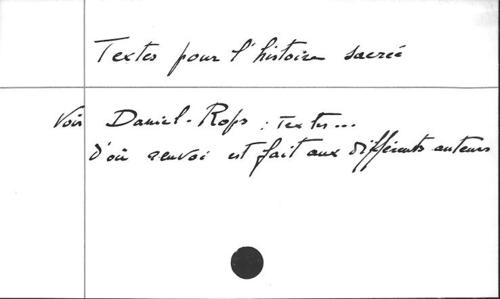 Textes pour l'histoire sacrée
Voir Daniel-Rops : Textes...
d'où renvoi est fait aux différents auteurs